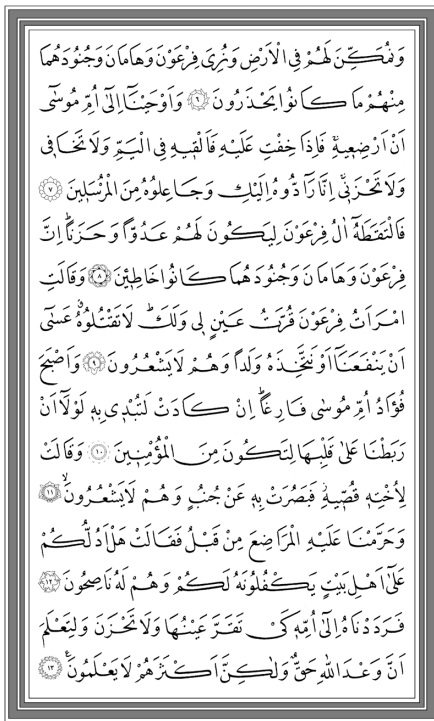 وَنُمَكِّنَ لَهُمْ فِي الْاَرْضِ وَنُرِيَ فِرْعَوْنَ وَهَامَانَ وَجُنُودَهُمَا
مِنْهُمْ مَا كَانُوا يَحْذَرُونَ ﴿٦﴾ وَاَوْحَيْنَٓا اِلٰٓى اُمِّ مُوسٰٓى
اَنْ اَرْضِعِيهِۚ فَاِذَا خِفْتِ عَلَيْهِ فَاَلْقِيهِ فِي الْيَمِّ وَلَا تَخَافِي
وَلَا تَحْزَنِيۚ اِنَّا رَٓادُّوهُ اِلَيْكِ وَجَاعِلُوهُ مِنَ الْمُرْسَلِينَ ﴿٧﴾
فَالْتَقَطَهُٓ اٰلُ فِرْعَوْنَ لِيَكُونَ لَهُمْ عَدُوًّا وَحَزَنًاۜ اِنَّ
فِرْعَوْنَ وَهَامَانَ وَجُنُودَهُمَا كَانُوا خَاطِـِٔينَ ﴿٨﴾ وَقَالَتِ
امْرَاَتُ فِرْعَوْنَ قُرَّتُ عَيْنٍ لِي وَلَكَۜ لَا تَقْتُلُوهُۗ عَسٰٓى
اَنْ يَنْفَعَنَٓا اَوْ نَتَّخِذَهُ وَلَدًا وَهُمْ لَا يَشْعُرُونَ ﴿٩﴾ وَاَصْبَحَ
فُؤَادُ اُمِّ مُوسٰى فَارِغًاۜ اِنْ كَادَتْ لَتُبْدِي بِهِ لَوْلَٓا اَنْ
رَبَطْنَا عَلٰى قَلْبِهَا لِتَكُونَ مِنَ الْمُؤْمِنِينَ ﴿١٠﴾ وَقَالَتْ
لِاُخْتِهِ قُصِّيهِۘ فَبَصُرَتْ بِهِ عَنْ جُنُبٍ وَهُمْ لَا يَشْعُرُونَۙ ﴿١١﴾
وَحَرَّمْنَا عَلَيْهِ الْمَرَاضِعَ مِنْ قَبْلُ فَقَالَتْ هَلْ اَدُلُّكُمْ
عَلٰٓى اَهْلِ بَيْتٍ يَكْفُلُونَهُ لَكُمْ وَهُمْ لَهُ نَاصِحُونَ ﴿١٢﴾
فَرَدَدْنَاهُ اِلٰٓى اُمِّهِ كَيْ تَقَرَّ عَيْنُهَا وَلَا تَحْزَنَ وَلِتَعْلَمَ
اَنَّ وَعْدَ اللّٰهِ حَقٌّ وَلٰكِنَّ اَكْثَرَهُمْ لَا يَعْلَمُونَ۟ ﴿١٣﴾